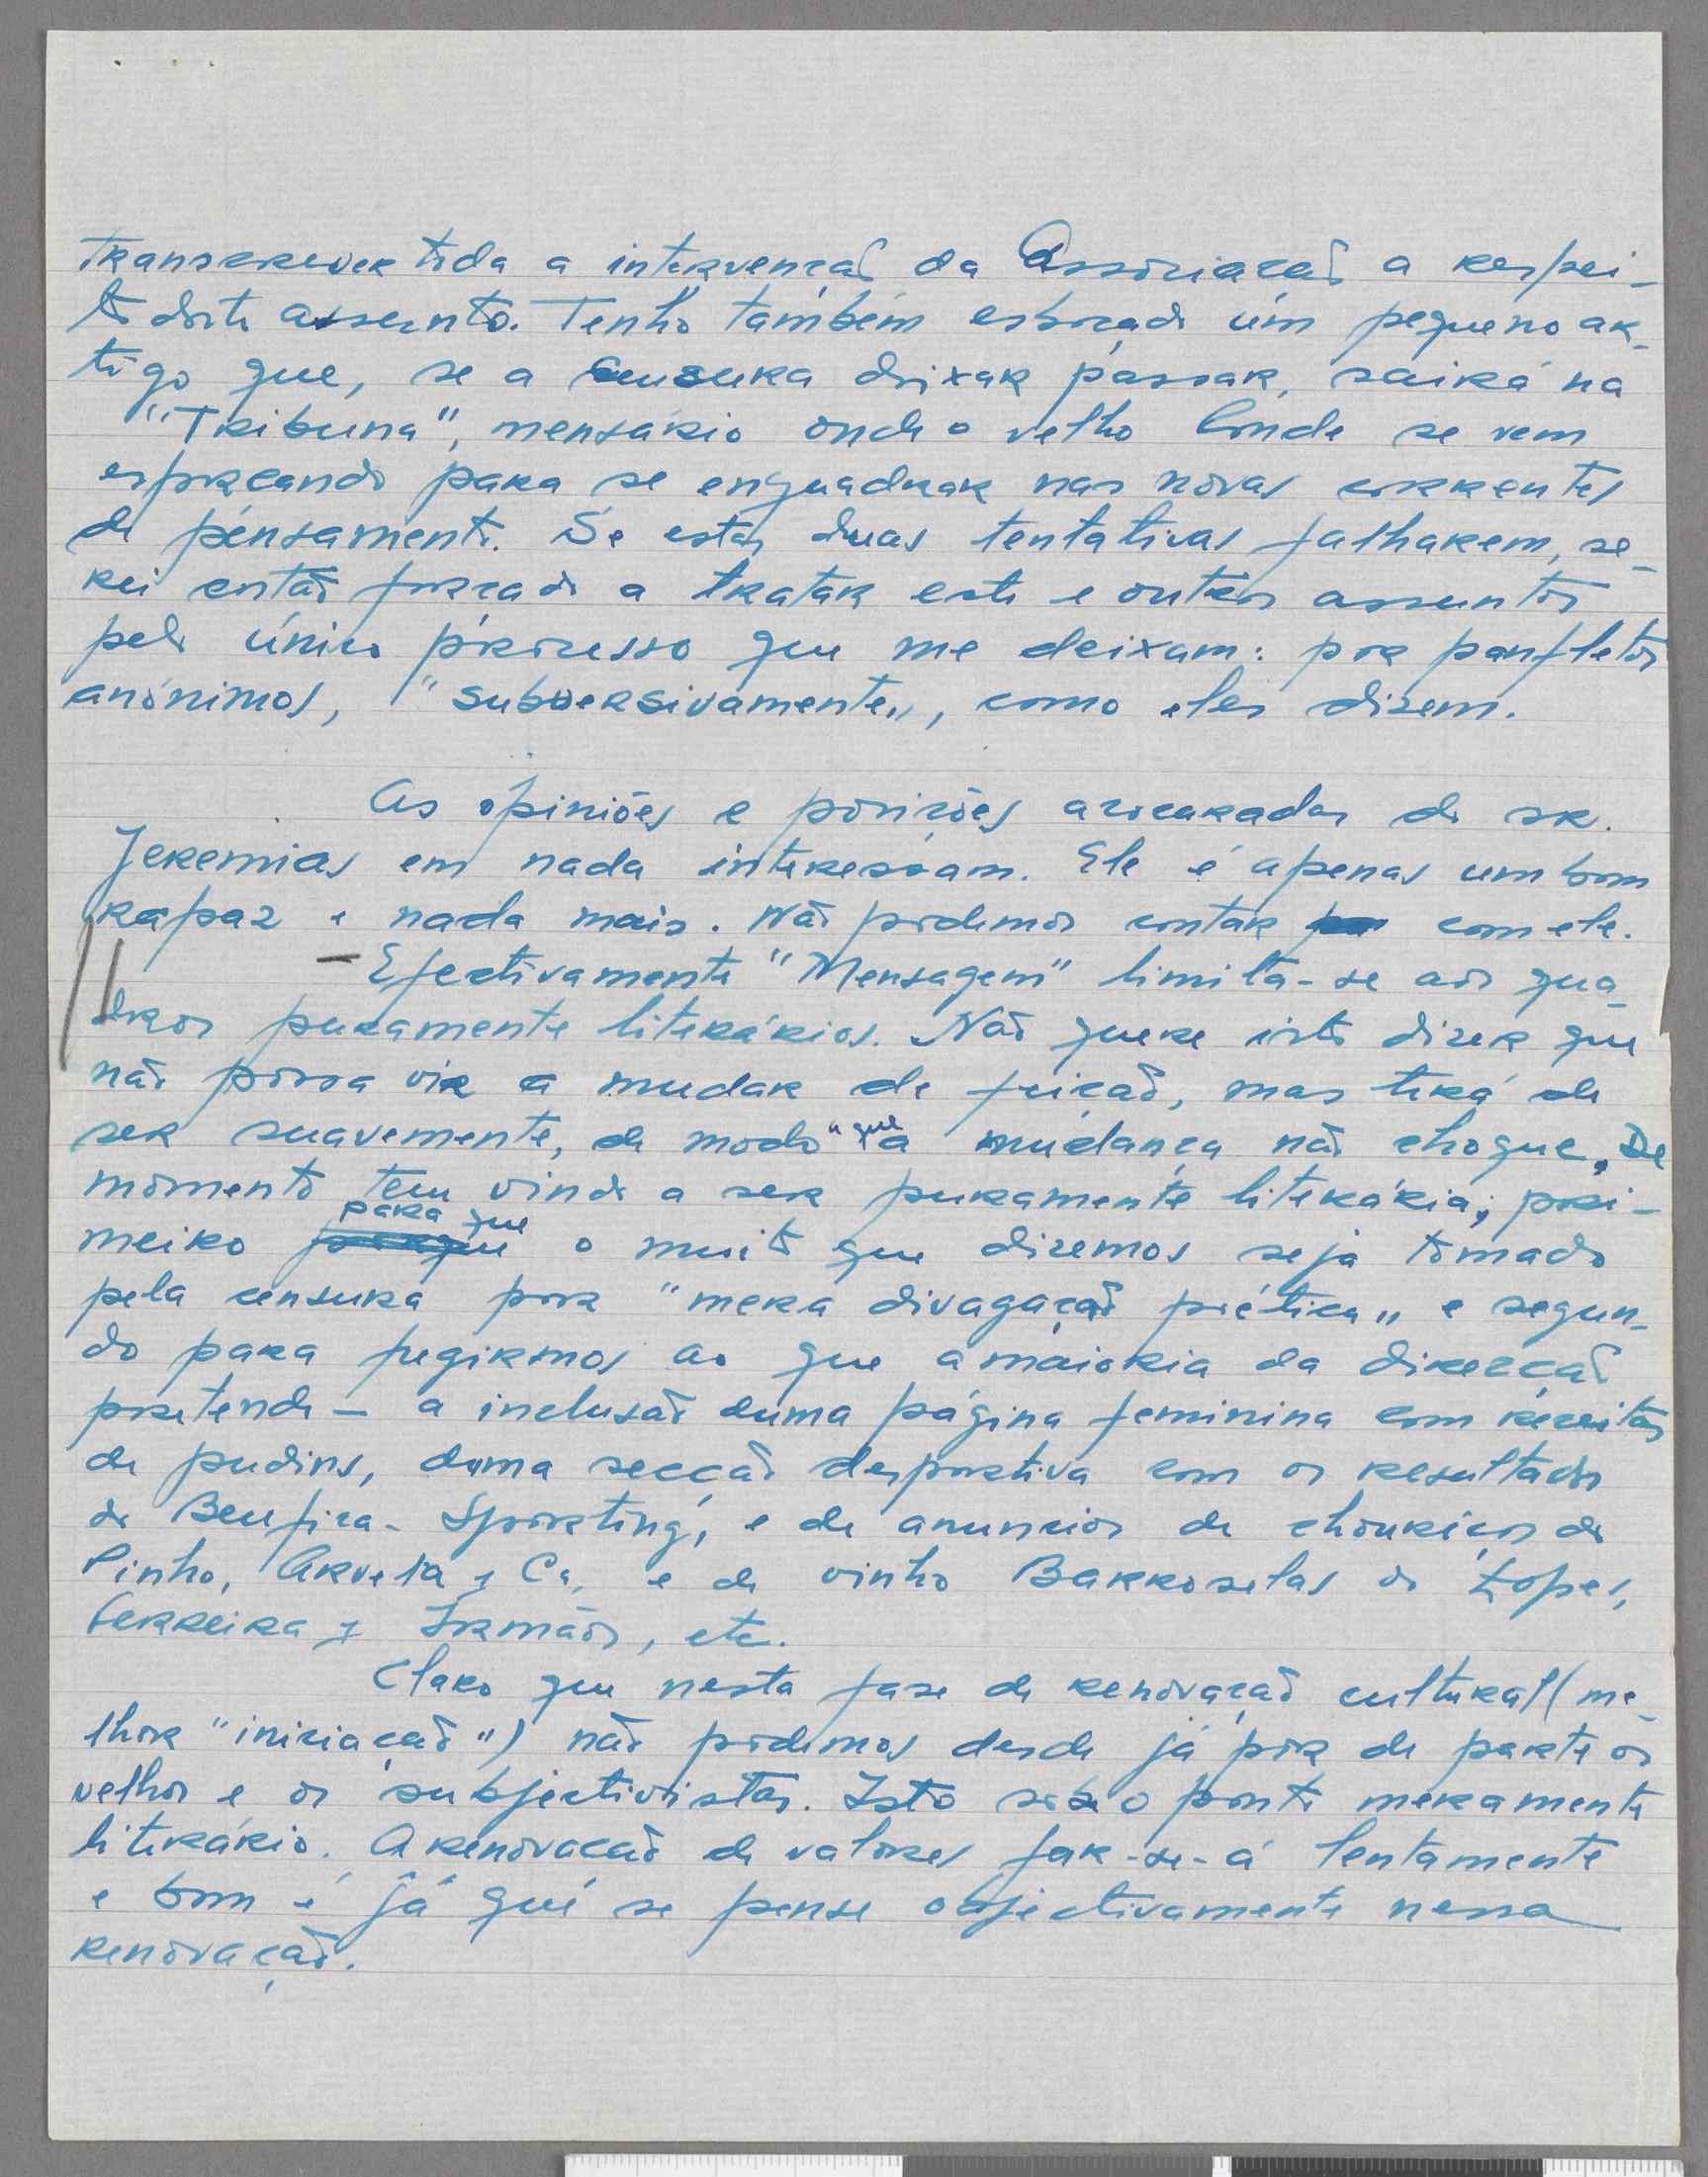 transcrever toda a intervenção da Associação a respei-
to deste assunto. Tenho também esboçado um pequeno ar-
tigo que, se a censura deixar passar, sairá na
"Tribuna", mensário onde o velho Conde se vem
esforçando para se enquadrar nas novas correntes
de pensamento. Se estas duas tentativas falharem, se-
rei então forçado a tratar este e outros assuntos
pelo único processo que me deixam: por panfletos
anónimos, "subversivamente", como eles dizem.
As opiniões e posições do sr.
Jeremias em nada interessam. Ele é apenas um bom
rapaz e nada mais. Não podemos contar com ele.
— Efectivamente "Mensagem" limita-se aos qua-
dros puramente literários. Não quere isto dizer que
não possa vir a mudar de feição, mas terá de
ser suavemente, de modo a que a mudança não choque. De
momento tem vindo a ser puramente literária; pri-
meiro para que o muito que dizemos seja tomado
pela censura por "mera divagação poética" e segun-
do para fugirmos ao que a maioria da direcção
pretende — a inclusão duma página feminina com receitas
de pudins, duma secção desportiva com os resultados
do Benfica-Sporting, e de anuncios de chouriços de
Pinho, Arvela & Ca, e de vinho Barroselas de Lopes,
Ferreira & Irmãos, etc.
Claro que nesta fase de renovação cultural (me-
lhor "iniciação") não podemos desde já pôr de parte os
velhos e os subjectivistas. Isto sob o ponto meramente
literário. A renovação de valores far-se-á lentamente
e bom é já que se pense objectivamente nessa
renovação.